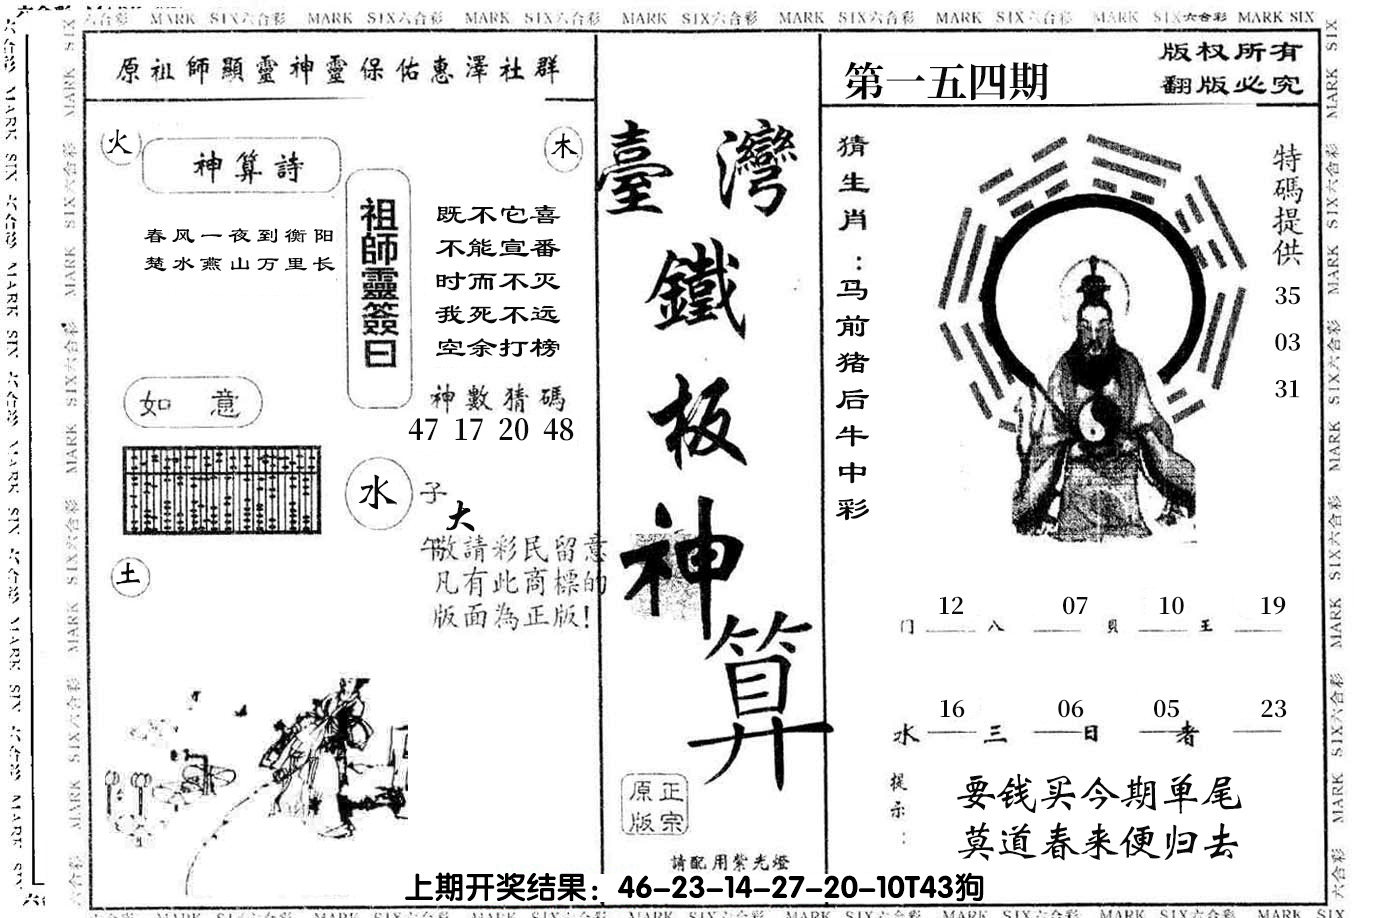 MARK SIX六合彩 MARK SIX六合彩 MARK SIX六合彩 MARK SIX六合彩 MARK SIX六合彩 MARK SIX六合彩 MARK SIX六合彩 MARK SIX
原祖師顯靈神靈保佑惠澤社群
火
神算詩
木
春风一夜到衡阳
楚水燕山万里长
祖師靈簽曰
既不它喜
不能宣番
时而不灭
我死不远
空余打榜
如 意
神數猜碼
47 17 20 48
水
子
大
午
敬請彩民留意
凡有此商標的
版面為正版!
土
臺灣
鐵
板
神
算
原正
版宗
請配用紫光燈
第一五四期
版权所有
翻版必究
猜生肖:马前猪后牛中彩
特碼提供
35
03
31
12 07 10 19
门 八 貝 王
16 06 05 23
水 三 日 者
提示:
要钱买今期单尾
莫道春来便归去
上期开奖结果：46-23-14-27-20-10T43狗